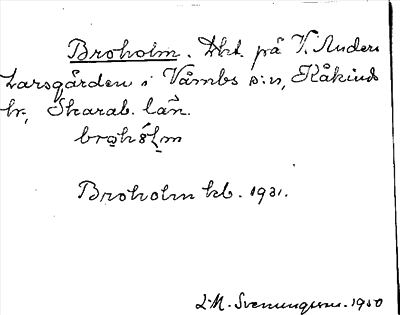 Broholm. Lht. på V. Anders
Larsgården i Våmbs s:n, Kåkinds
hr, Skarab. län.
brohólm
Broholm kb. 1931.
L.M. Svenungsson. 1950